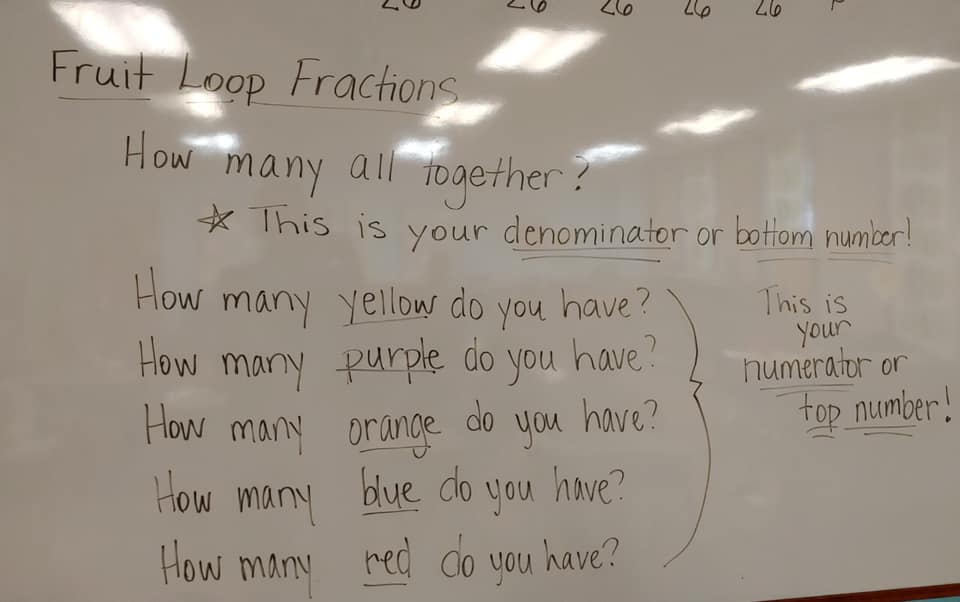 26 26 26 26 26
Fruit Loop Fractions
How many all together?
☆ This is your denominator or bottom number!
How many yellow do you have?
How many purple do you have?
How many orange do you have?
How many blue do you have?
How many red do you have?
This is
your
numerator or
top number!